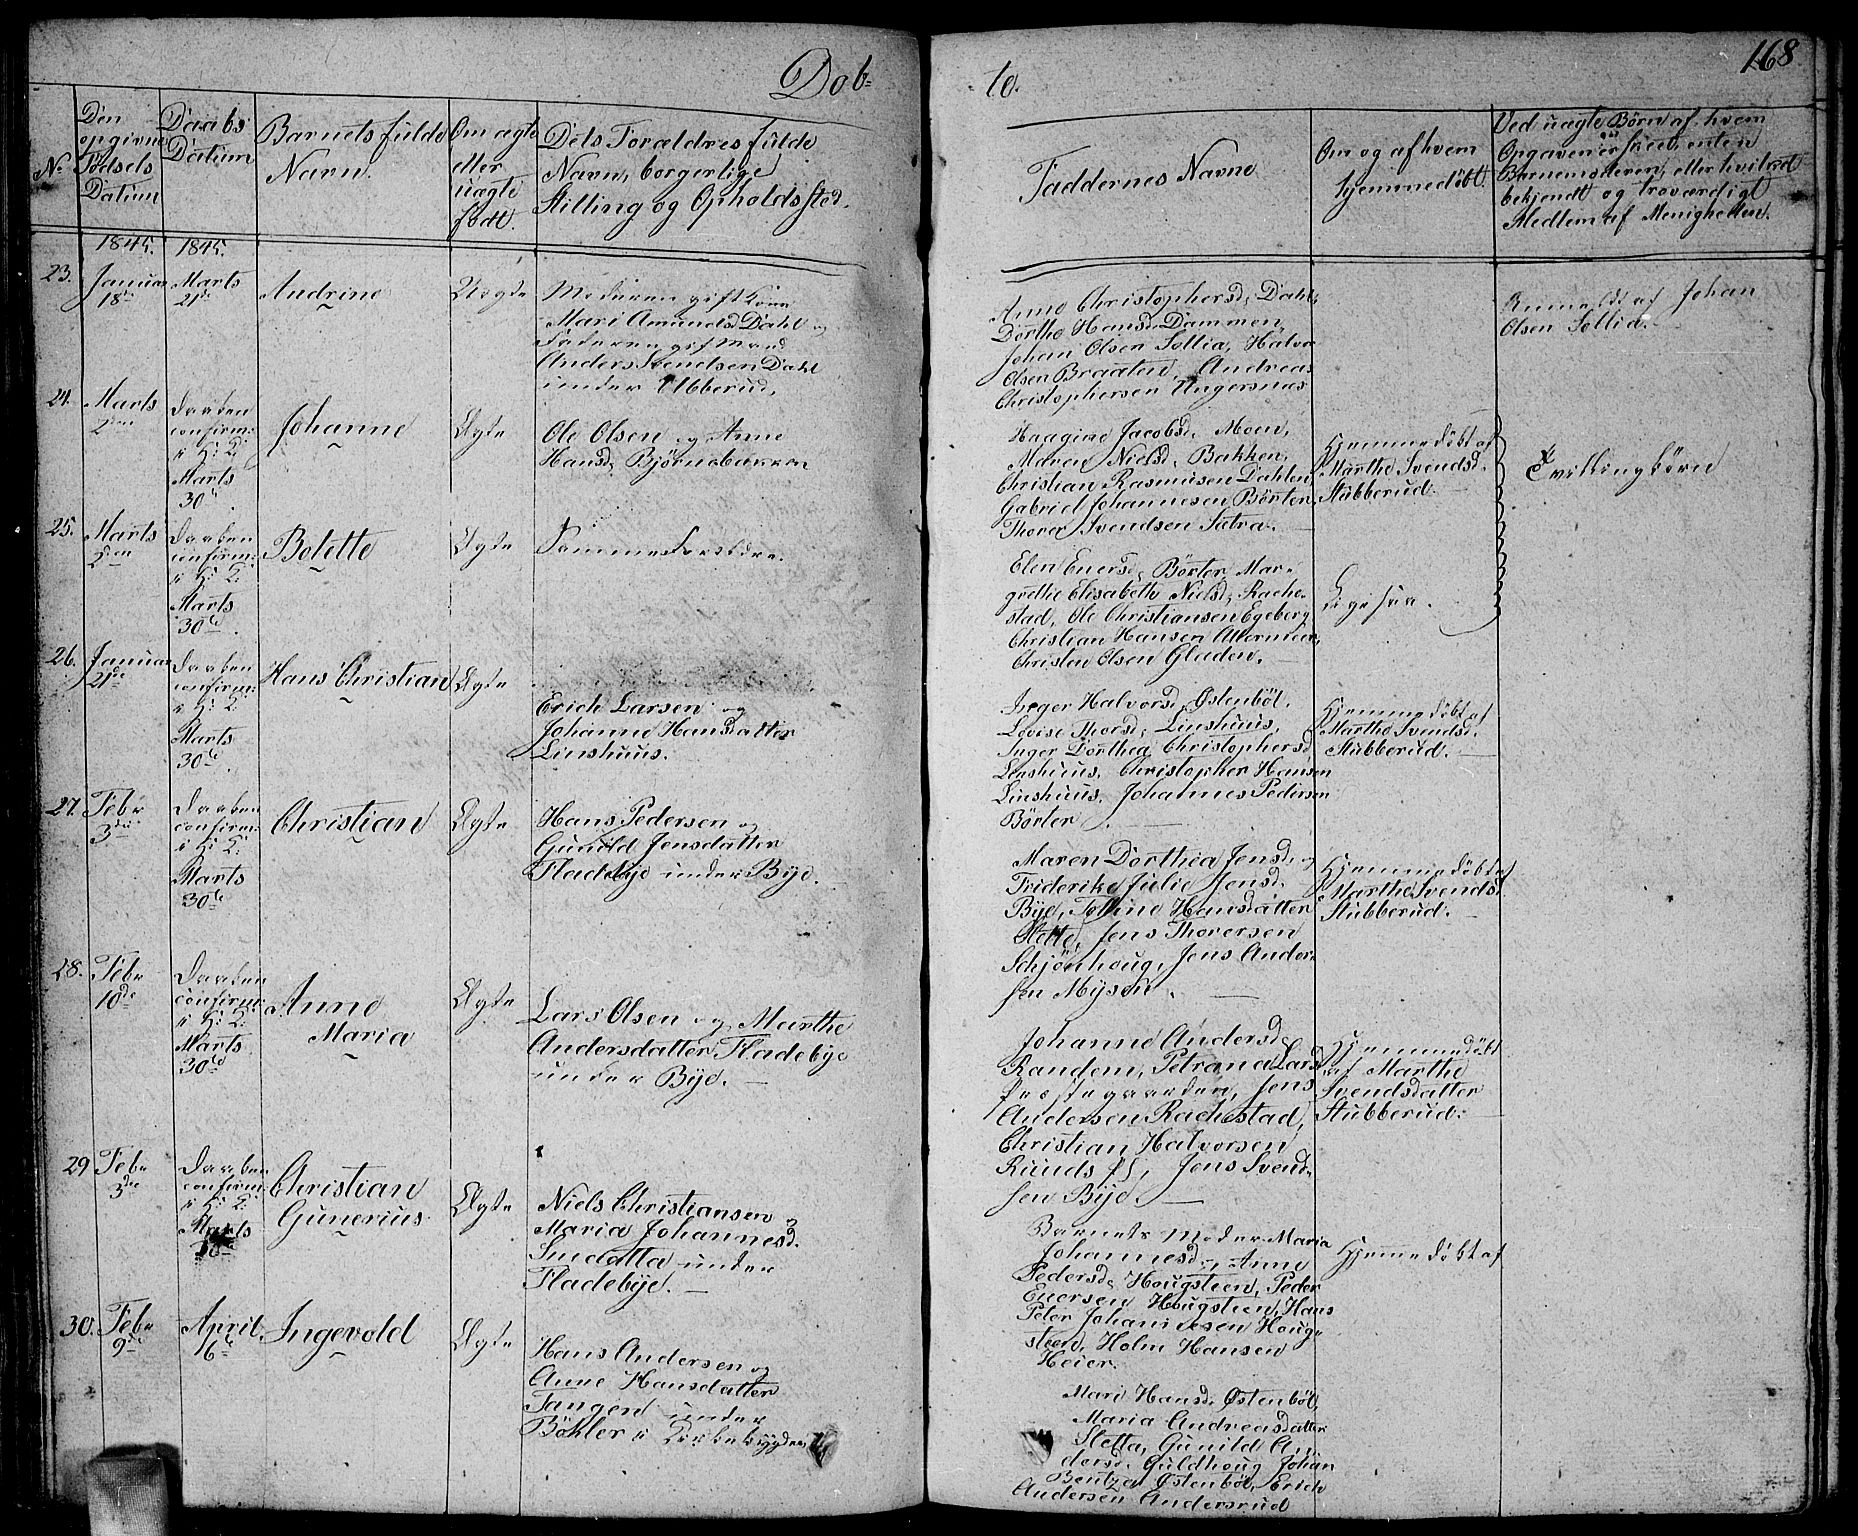 Døb-
te.
168
No
Den
opgivne
Fødsels
Datum
Daabs
Datum
Barnets fulde
Navn.
Om ægte
eller
uægte
født.
Dets Forældres fulde
Navn, borgerlige
Stilling og Opholdssted.
Faddernes Navne
Om og af hvem
hjemmedøbt.
Ved uægte Børn af hvem
Opgaven er skeed, enten
Barnemoderen, eller tvilred
bekjendt og troværdigt
Medlem af Menigheden.
1845.
1845.
23.
Januar
18de
Marts
21de
Andrine
Uægte
Moderen gift Kone
Mari Amundsd. Dahl og
Faderen gift Mand
Anders Svendsen Dahl
under Ubberud.
Anne Christophersd. Dahl,
Dorthe Hansd. Dammen,
Johan Olsen Sollia, Halvor
Olsen Braaten, Andreas
Christophersen Ungersnæs
Anmeldt af Johan
Olsen Sollia.
24.
Marts
2den
Daaben
confirm:
i K: D:
Marts
30te
Johanne
Ægte
Ole Olsen og Anne
Hansd. Bjørnebakken
Haagine Jacobsd. Moen,
Maren Nielsd. Bakken,
Christian Rasmusen Dahlen,
Gabriel Johannesen Børter,
Thorer Svendsen Sætra.
Hjemmedøbt af
Marthe Svendsd.
Stubberud.
Tvillingbørn
25.
Marts
2den
Daaben
confirm:
i K: D:
Marts
30te
Bolette
Ægte
Samme Forældre.
Elen Euersd. Børter, Mar-
grethe Elisabeth Nielsd. Rache-
stad, Ole Christiansen Egeberg,
Christian Hansen
Christen Olsen Gladen.
Ligesaa.
26.
Januar
21de
Daaben
confirm:
i K: D:
Marts
30te
Hans Christian
Ægte
Erich Larsen og
Johanne Hansdatter
Linshuus.
Inger Halvorsd. Østenbøl,
Lovise Thorsd. Linshuus,
Inger Dorthea Christophersd.
Linshuus, Christopher Hansen
Linshuus, Johannes Pedersen
Børter.
Hjemmedøbt af
Marthe Svendsd.
Stubberud.
27.
Febr
3die
Daaben
confirm:
i K: D:
Marts
30te
Christian
Ægte
Hans Pedersen og
Gunild Jensdatter
Fladebye under Bye.
Maren Dorthea Jensd. og
Friderike Julie Jensd.
Bye, Tolline Hansdatter
Slette, Jens Thorersen
Schjønhoug, Jens Ander-
sen Mysen.
Hjemmedøbt af
Marthe Svendsd.
Stubberud.
28.
Febr
10de
Daaben
confirm:
i K: D:
Marts
30te
Anne
Maria
Ægte
Lars Olsen og Marthe
Andersdatter Fladebye
under Bye.
Johanne Andersd.
Randem, Petrana Larsd.
Præstegaarden, Jens
Andersen Rachestad,
Christian Halvorsen
Jens Svend-
sen Bye.
Hjemmedøbt
af Marthe
Svendsdatter
Stubberud.
29
Febr
3die
Daaben
confirm:
i K: D:
Marts
Christian
Gunerius
Ægte
Niels Christiansen og
Maria Johannesd.
under
Fladebye.
Barnets Moder Maria
Johannesd., Anne
Pedersd. Hougsteen, Peder
Euersen Hougsteen, Hans
Peter Johannesen Houg-
steen, Holm Hansen
Heier.
Hjemmedøbt af
30.
Febr
9de
April
6te
Ingevold
Ægte
Hans Andersen og
Anne Hansdatter
Tangen under
Bøhler i Kirkebygden
Mari Hansd. Østenbøl,
Maria Andreasdatter
Sletta, Gunild An-
dersd. Guldhoug, Johan
Bentzen Østenbøl, Erich
Andersen Andersrud